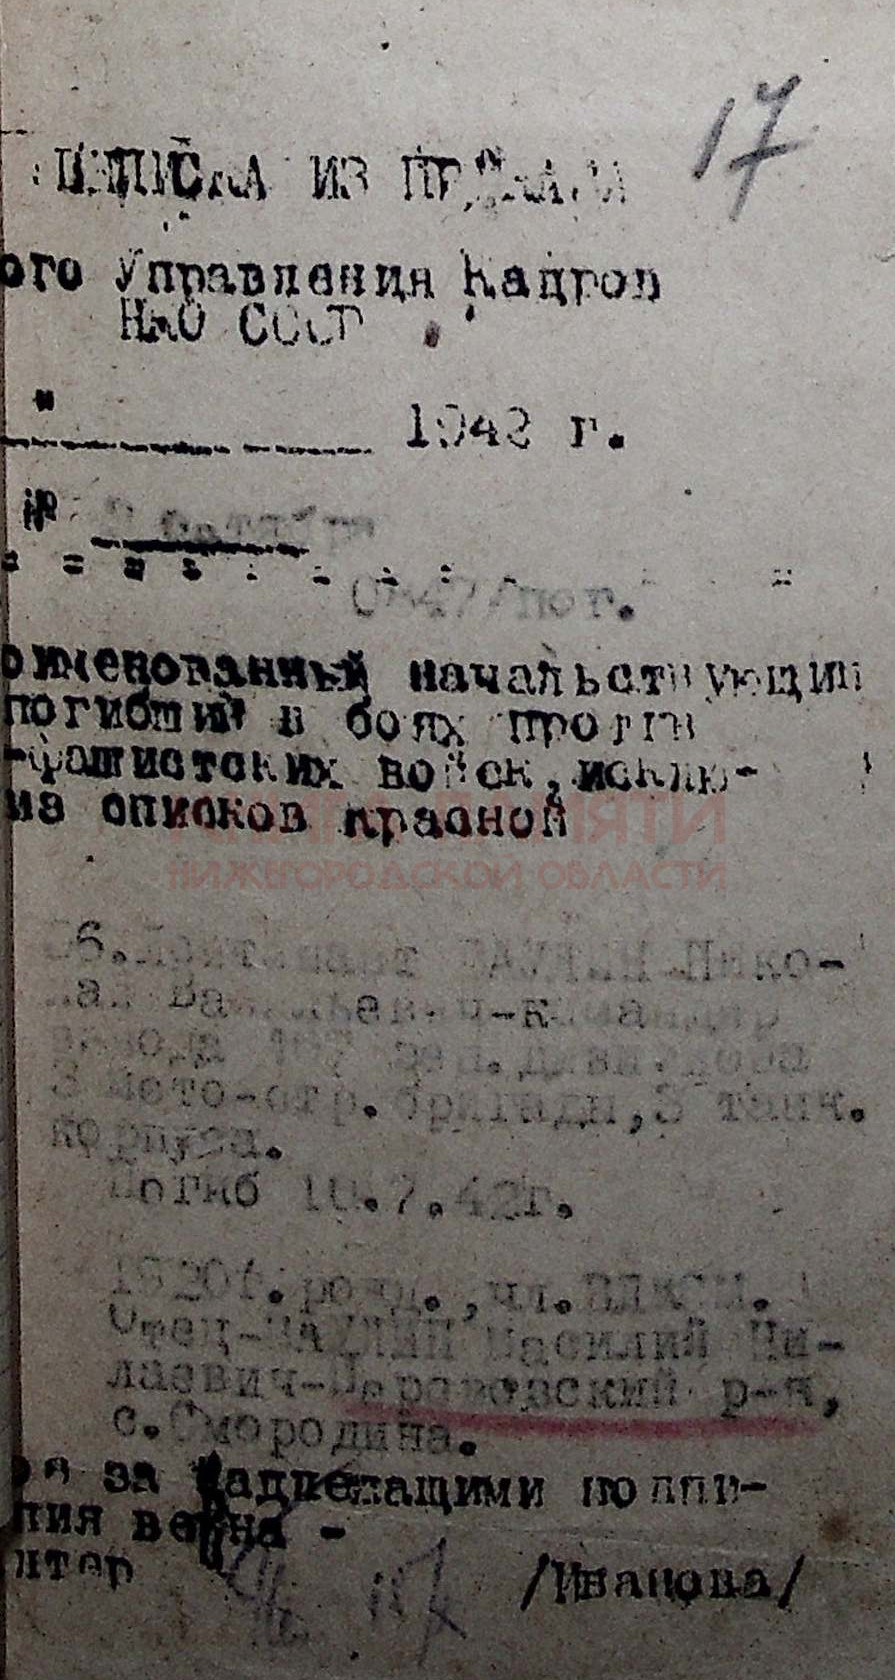 17
ВЫПИСКА ИЗ ПРИКАЗА
ого Управления Кадров
НКО СССР
"
1942 г.
№
октября
/пог.
оименованный начальствующий
погибший в боях против
-фашистских войск, исклю-
из списков Красной
ПАМЯТИ
НИЖЕГОРОДСКОЙ ОБЛАСТИ
6. Лейтенант Нико-
лай Васильевич-командир
взвода
3 мото-стр. бригады, 3 танк.
корпуса.
Погиб 10.7.42г.
1920г. рожд., чл. ВЛКСМ.
Отец- Василий Ни-
лаевич- р-н,
с. Смородина.
за надлежащими подпи-
верна -
/Иванова/